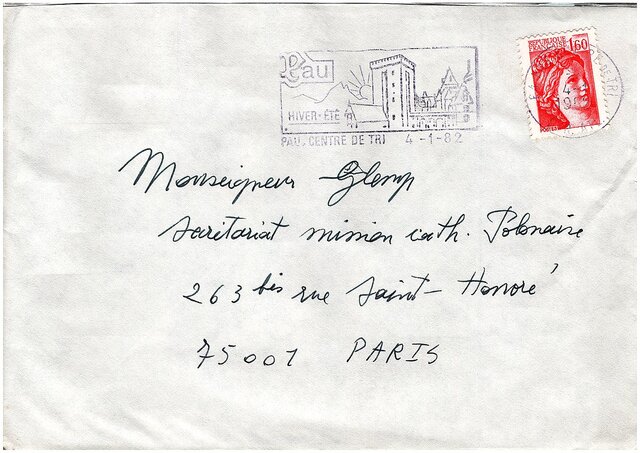 Pau
HIVER-ÉTÉ
PAU. CENTRE DE TRI 4-1-82
REPUBLIQUE
FRANCAISE
1,60
POSTES
Monseigneur Glemp
Secrétariat mission cath. Polonaise
263 bis rue Saint-Honoré
75001 PARIS